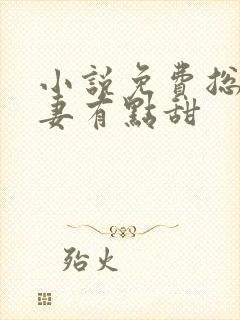 小說免費總
妻有點甜
殆火